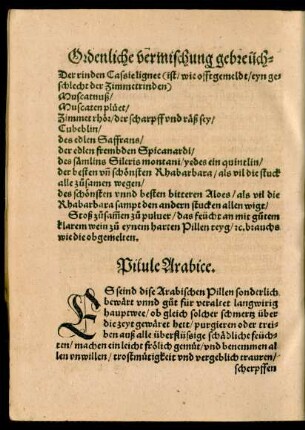 Ordenliche vermischung gebreüch⸗
Der rinden Cassie lignet (ist/ wie offt gemeldt/ eyn ge⸗
schlecht der Zimmetrinden)
Muscatnuß/
Muscaten plüet/
Zimmet rhör/ der scharpff vnd räß sey/
Cubeblin/
des edlen Saffrans/
der edlen frembden Spicanardi/
des sämlins Sileris montani/ yedes ein quintlin/
der besten vñ schönsten Rhabarbara/ als vil die stuck
alle zůsamen wegen/
des schönsten vnnd besten bitteren Aloes/ als vil die
Rhabarbara sampt den andern stucken allen wigt/
Stoß zůsam̃en zů puluer/ das feücht an mit gůtem
klarem wein zů eynem harten Pillen teyg/ ꝛc. brauchs
wie die obgemelten.
Pilule Arabice.
ES seind dise Arabischen Pillen sonderlich
bewärt vnnd gůt für veraltet langwirig
hauptwee/ ob gleich solcher schmertz über
die zeyt gewäret heit/ purgieren oder trei⸗
ben auß alle überflüssige schädliche feüch⸗
ten/ machen ein leicht frölich gemüt/ vnd benemmen al
len vnwillen/ trostmütigkeit vnd vergeblich trauren/
scherpffen